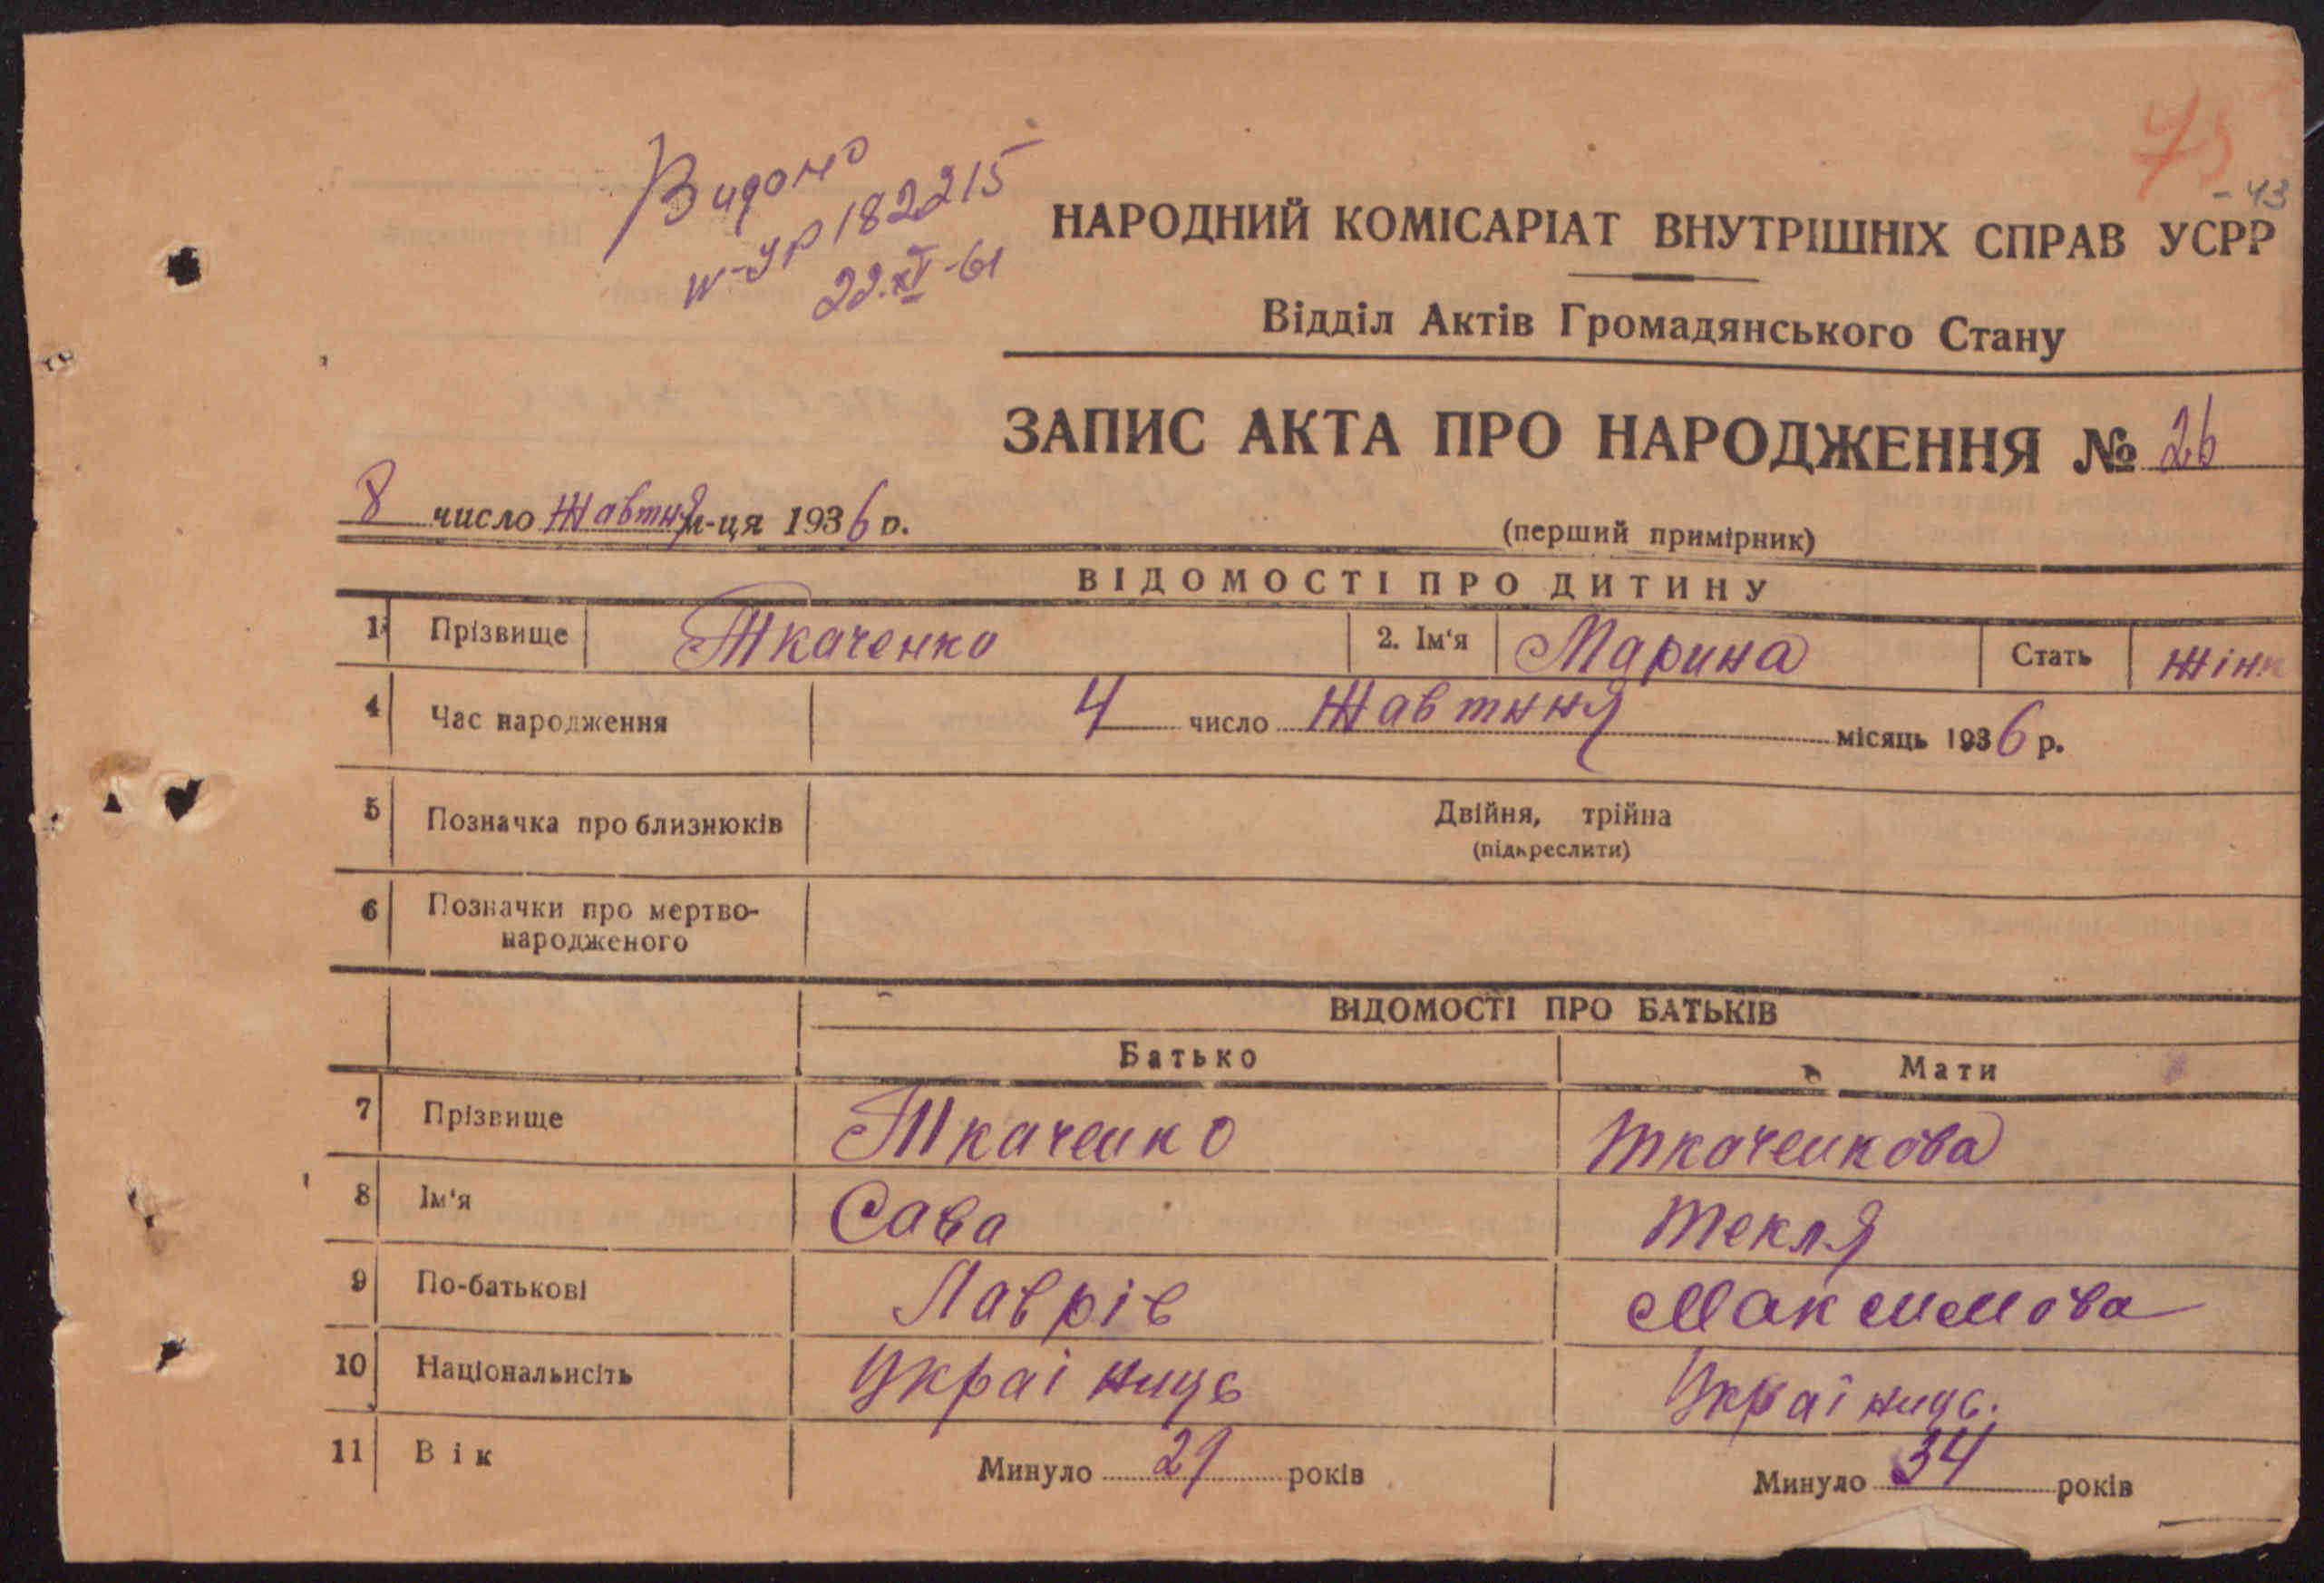 75
- 43
Видано
ш-УР 182215
22.XI-61
НАРОДНИЙ КОМІСАРІАТ ВНУТРІШНІХ СПРАВ УСРР
Відділ Актів Громадянського Стану
ЗАПИС АКТА ПРО НАРОДЖЕННЯ № 26
8 число Жавтня м-ця 1936 р.
(перший примірник)
ВІДОМОСТІ ПРО ДИТИНУ
1 Прізвище Ткаченко 2. Ім'я Марина Стать жінк
4 Час народження 4 число Жавтння місяць 1936 р.
5 Позначка про близнюків Двійня, трійна
(підкреслити)
6 Позначки про мертво-
народженого
ВІДОМОСТІ ПРО БАТЬКІВ
Батько Мати
7 Прізвище Ткаченко Ткаченкова
8 Ім'я Сава Текля
9 По-батькові Лаврів Максимова
10 Національнсіть Украінець Україн
11 Вік Минуло 29 років Минуло 34 років